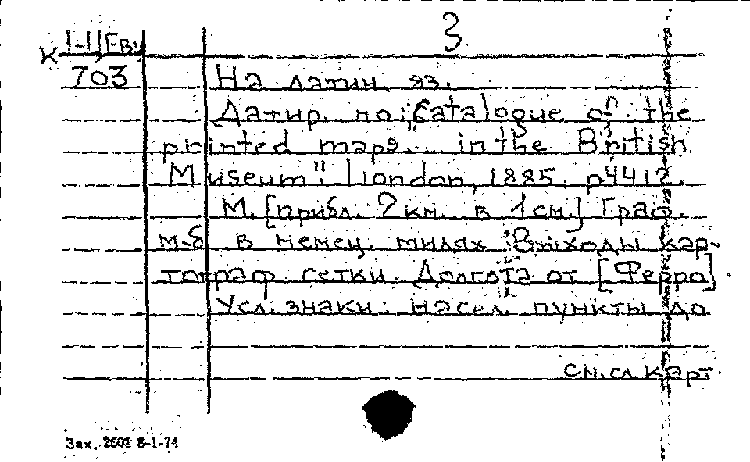 3
К 1-Ц/Ев
703
На латин. яз.
Датир. по: "Catalogue of the
printed maps... in the British
Museum". London, 1885. p4412.
М. [прибл. 9 км. в 1 см.] Граф.
м-б в немец. милях. Выходы кар-
тограф. сетки. Долгота от [Ферро].
Усл. знаки: насел. пункты до
См. сл. карт
Зак. 2602 8-1-74